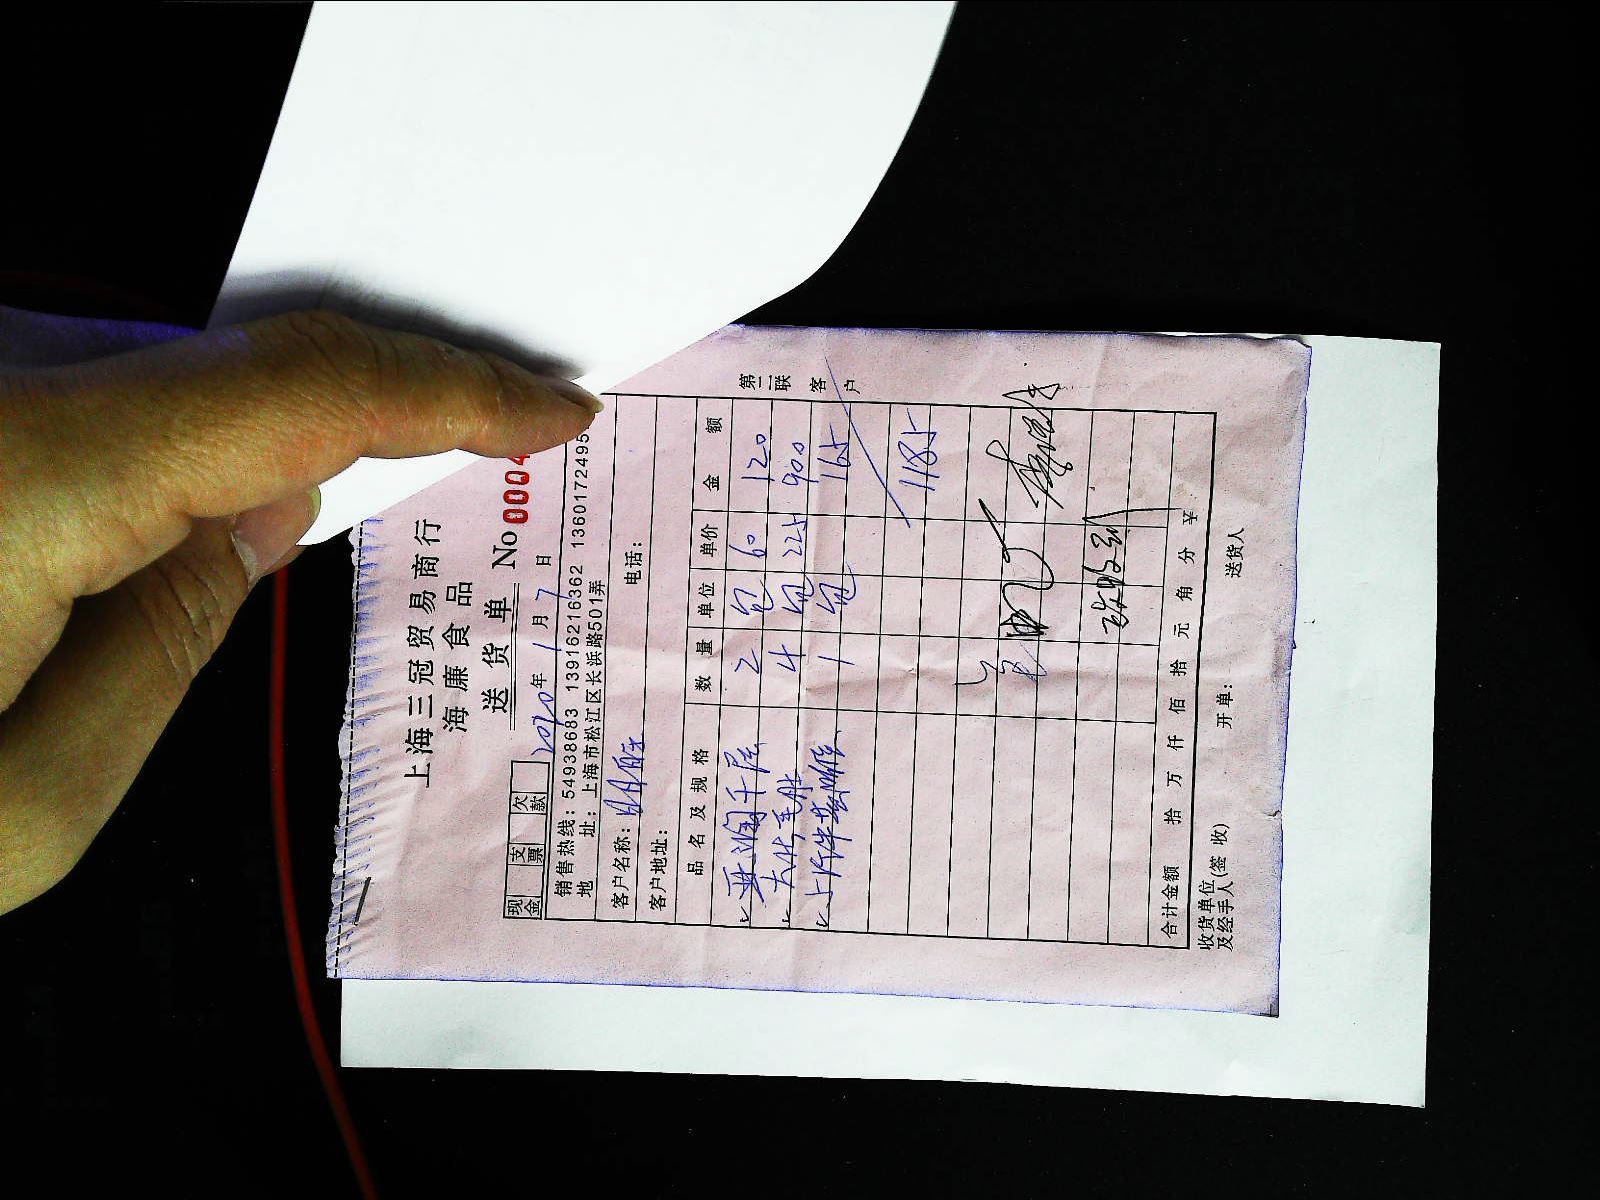 上海三冠贸易商行
海廉食品
送货单
No 0004
现金 支票 欠款
2020年1月7日
销售热线：54938683 13916216362 1360172495
地 址：上海市松江区长浜路501弄
客户名称：
电话：
客户地址：
品名及规格 数量 单位 单价 金额
千层 2 包 60 120
大片毛肚 4 包 225 900
1 包 165
1185
合计金额 拾 万 仟 佰 拾 元 角 分 ¥
收货单位及经手人(签收) 开单： 送货人
第二联 客户